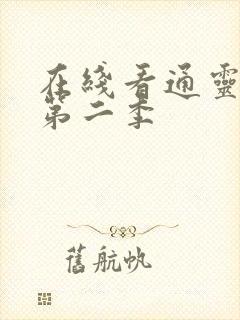 在綫看通靈
第二季
舊航帆